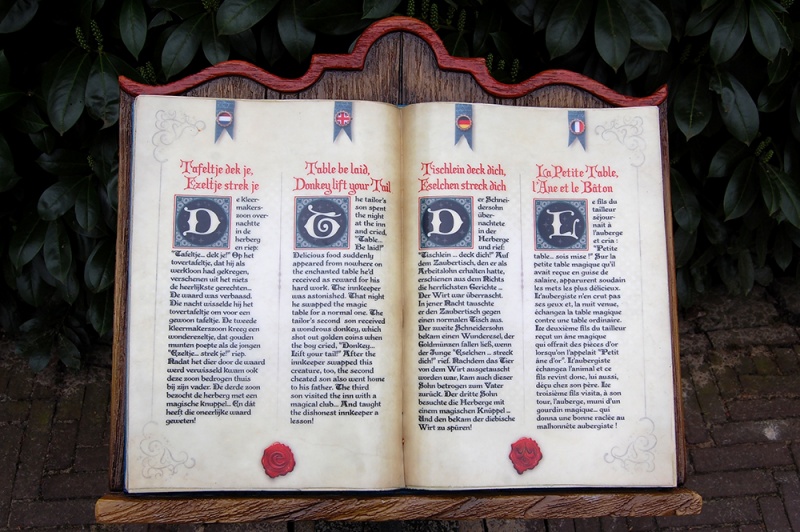 Tafeltje dek je,
Ezeltje strek je
De Kleer-
makers-
zoon over-
nachtte
in de
herberg
en riep:
"Tafeltje... dek je!" Op het
tovertafeltje, dat hij als
werkloon had gekregen,
verschenen uit het niets
de heerlijkste gerechten...
De waard was verbaasd.
Die nacht wisselde hij het
tovertafeltje om voor een
gewoon tafeltje. De tweede
kleermakerszoon kreeg een
wonderezeltje, dat gouden
munten poepte als de jongen
"Ezeltje... strek je!" riep.
Nadat het dier door de waard
werd verwisseld kwam ook
deze zoon bedrogen thuis
bij zijn vader. De derde zoon
bezocht de herberg met een
magische knuppel... En dát
heeft die oneerlijke waard
geweten!
Table be laid,
Donkey lift your Tail
The tailor's
son spent
the night
at the inn
and cried,
"Table...
Be laid!"
Delicious food suddenly
appeared from nowhere on
the enchanted table he'd
received as reward for his
hard work. The innkeeper
was astonished. That night
he swapped the magic
table for a normal one. The
tailor's second son received
a wondrous donkey, which
shot out golden coins when
the boy cried, "Donkey...
Lift your tail!" After the
innkeeper swapped this
creature, too, the second
cheated son also went home
to his father. The third
son visited the inn with a
magical club... And taught
the dishonest innkeeper a
lesson!
Tischlein deck dich,
Eselchen streck dich
Der Schnei-
dersohn
über-
nachtete
in der
Herberge
und rief:
"Tischlein ... deck dich!" Auf
dem Zaubertisch, den er als
Arbeitslohn erhalten hatte,
erschienen aus dem Nichts
die herrlichsten Gerichte ...
Der Wirt war überrascht.
In jener Nacht tauschte
er den Zaubertisch gegen
einen normalen Tisch aus.
Der zweite Schneidersohn
bekam einen Wunderesel, der
Goldmünzen fallen ließ, wenn
der Junge "Eselchen ... streck
dich!" rief. Nachdem das Tier
von dem Wirt ausgetauscht
worden war, kam auch dieser
Sohn betrogen zum Vater
zurück. Der dritte Sohn
besuchte die Herberge mit
einem magischen Knüppel ...
Und den bekam der diebische
Wirt zu spüren!
La Petite Table,
l'Âne et le Bâton
Le fils du
tailleur
séjour-
nait à
l'auberge
et cria :
"Petite
table... sois mise !" Sur la
petite table magique qu'il
avait reçue en guise de
salaire, apparurent soudain
les mets les plus délicieux.
L'aubergiste n'en crut pas
ses yeux et, la nuit venue,
échangea la table magique
contre une table ordinaire.
Le deuxième fils du tailleur
reçut un âne magique
qui offrait des pièces d'or
lorsqu'on l'appelait "Petit
âne d'or". L'aubergiste
échangea l'animal et ce
fils revint donc, lui aussi,
déçu chez son père. Le
troisième fils visita, à son
tour, l'auberge, muni d'un
gourdin magique... qui
donna une bonne raclée au
malhonnête aubergiste !